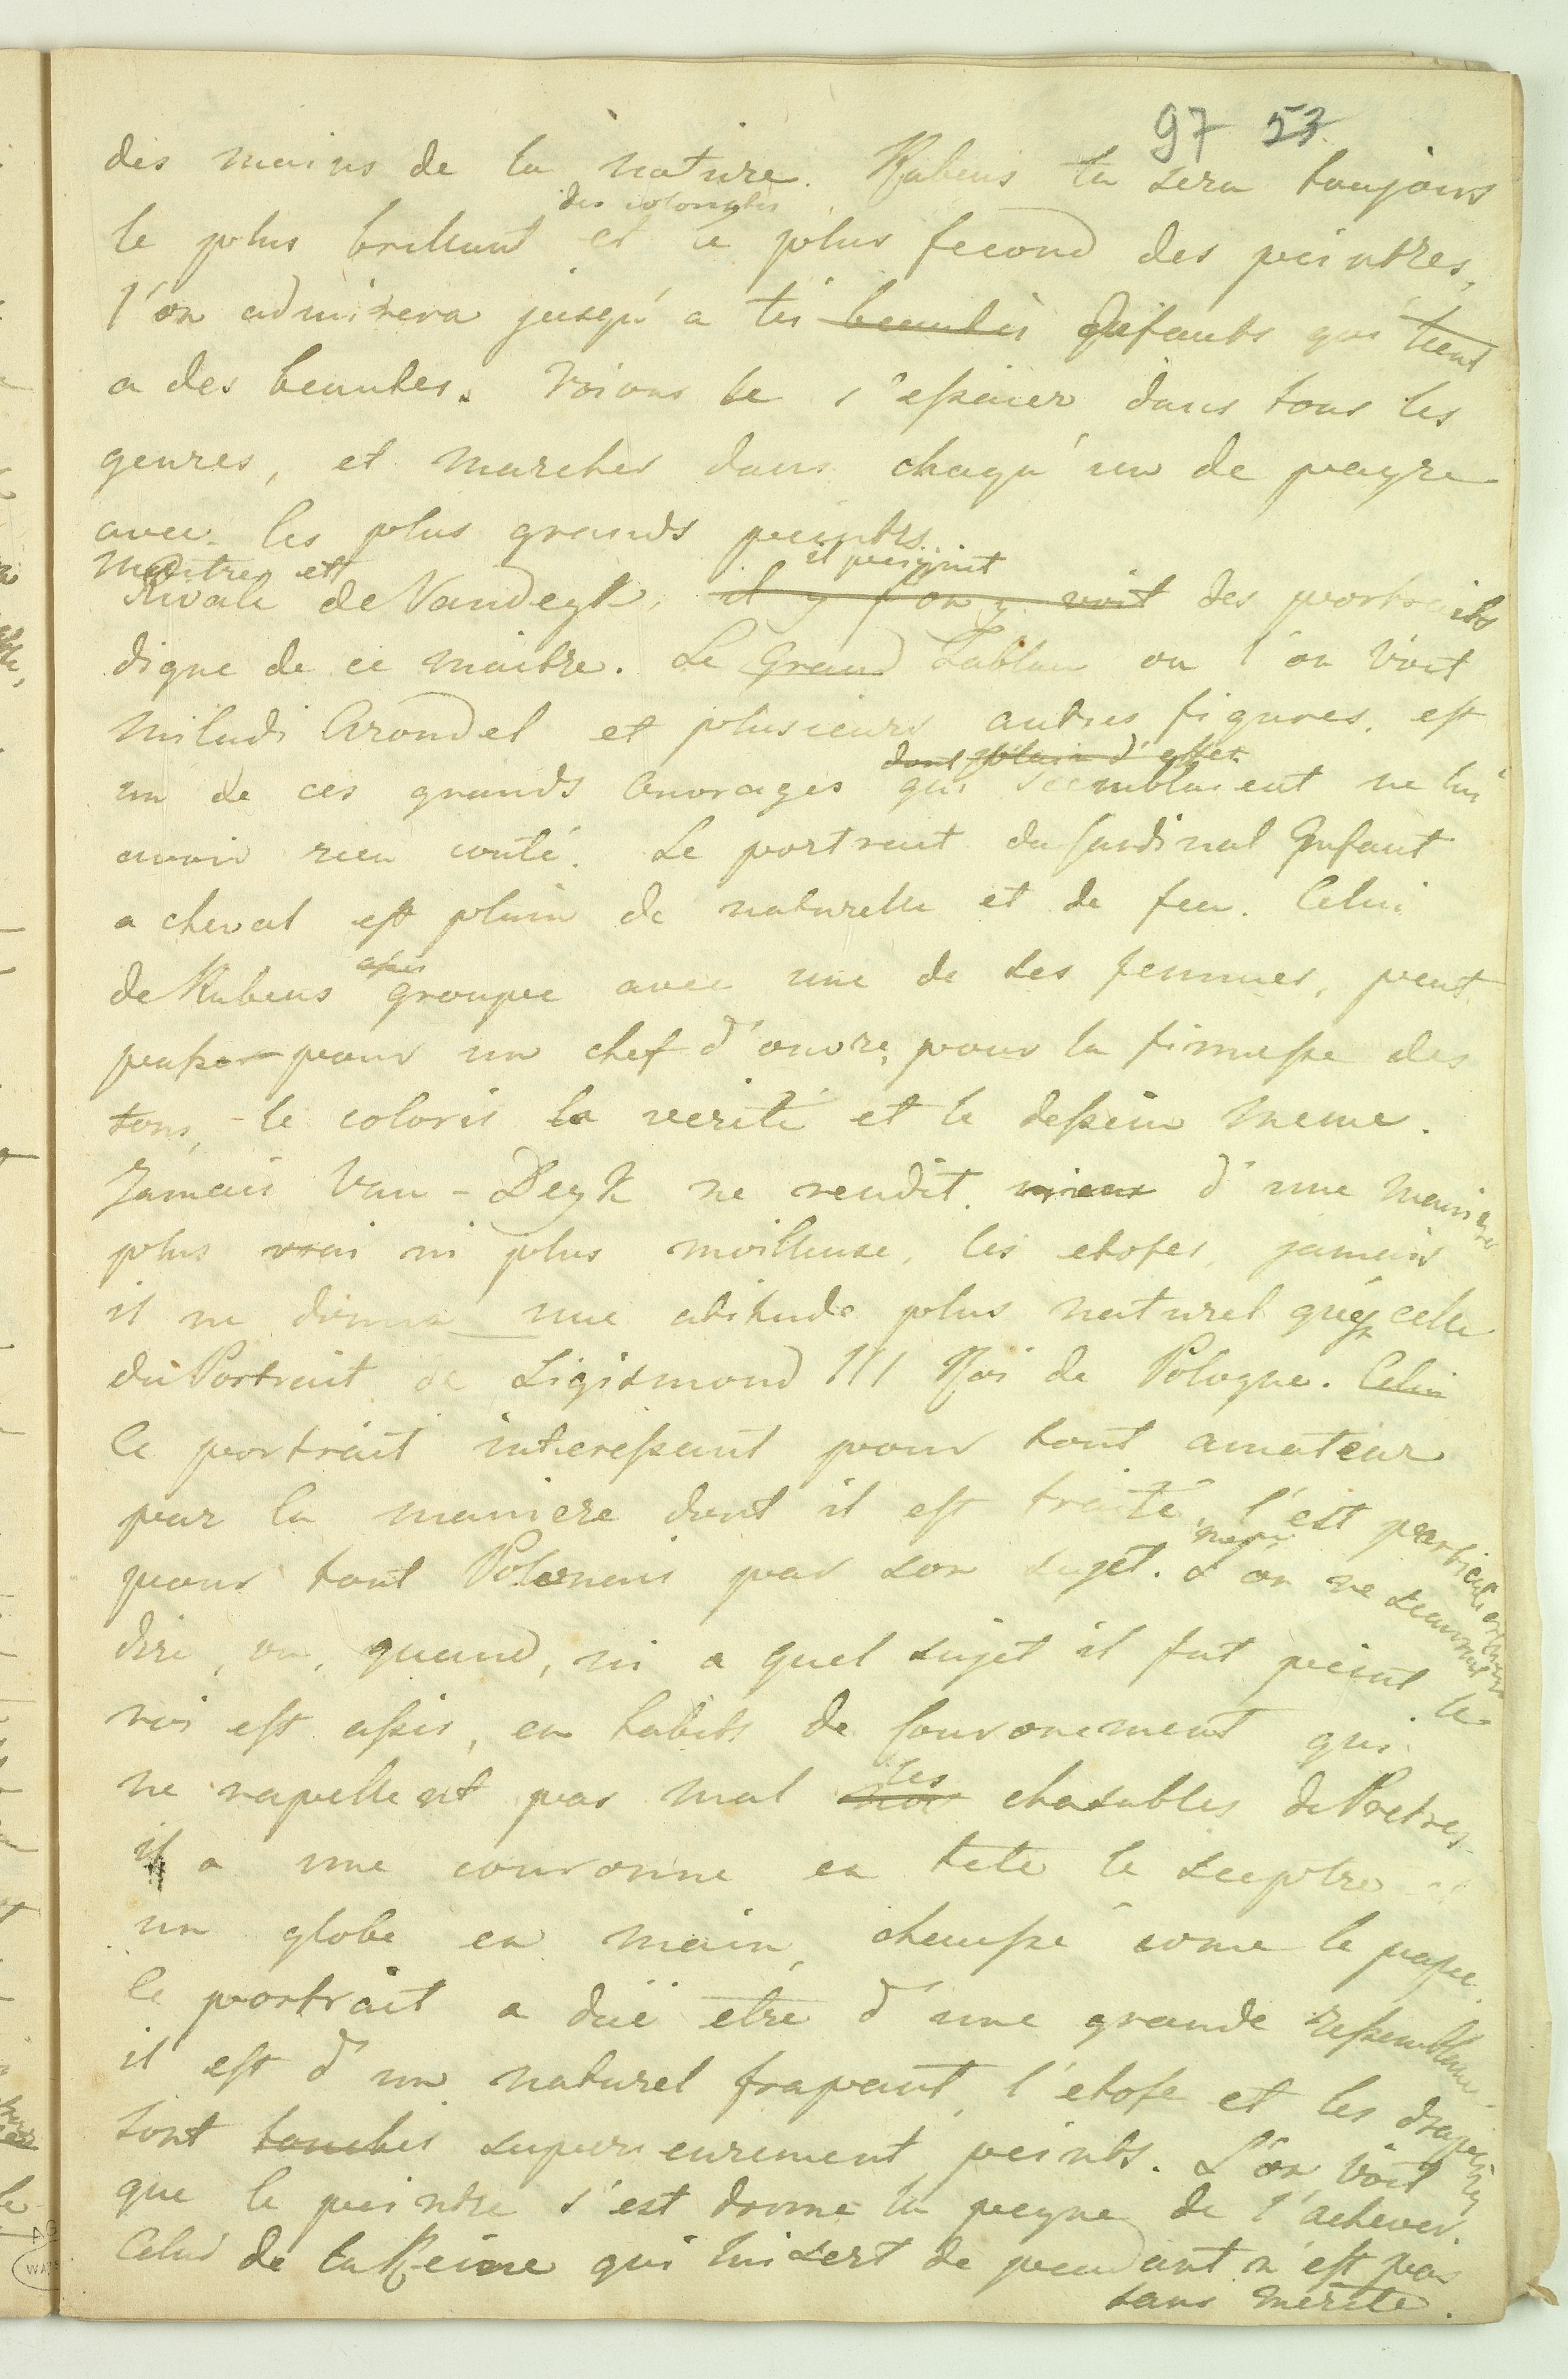 97 53.
des mains de la nature. Rubens tu sera toujours
des coloristes
le plus brillant et le plus fecond des peintres,
l'on admirera jusqu'a tes beautés defauts qui tient
a des beautes. Voions le s'essaier dans tous les
genres, et marcher dans chaqu'un de payre
avec les plus grands peintrs
Maitres et il peignit
Rivale de Vandeyk, il y l'on y voit des portraits
digne de ce maitre. Le Grand Tablau ou l'on voit
miladi Arondel et plusieurs autres figures. est
dont plein d'effet
un de ces grands ouvrages qui semblaient ne lui
avoir rien couté. Le portrait du Cardinal Infant
a cheval est plain de naturelle et de feu. Celui
assis
de Rubens groupee avec une de ses femmes, peut
passer pour un chef d'ouvre, pour la finesse des
tons, le coloris la verité et le dessein meme.
Jamais Van-Deyk ne rendit mieux d'une maniere
plus vrai ni plus moilleuse, les etofes, jamais
il ne donna une atitude plus naturel qu'en celle
du Portrait de Sigismond III Roi de Pologne. Celui
Ce portrait interessant pour tout amateur
par la maniere dont il est traité, l'est particulierement
pour tout Polonais par son sujet. L'on ne scauroit
dire, ou, quand, ni a quel sujet il fut peint le
roi est assis, en habits de Couronement qui
les
ne rapellent pas mal nos chasubles de Pretres.
il a une couronne en tete le sceptre et
un globe en main, chaussé come le pape.
Ce portrait a düe etre d'une grande ressemblance
il est d'un naturel frapant, l'etofe et les draperies
sont touchés superieurement peints. L'on voit
que le peintre s'est donné la peyne de l'achever.
Celui de la Reine qui lui sert de pendant n'est pas
sans merite.